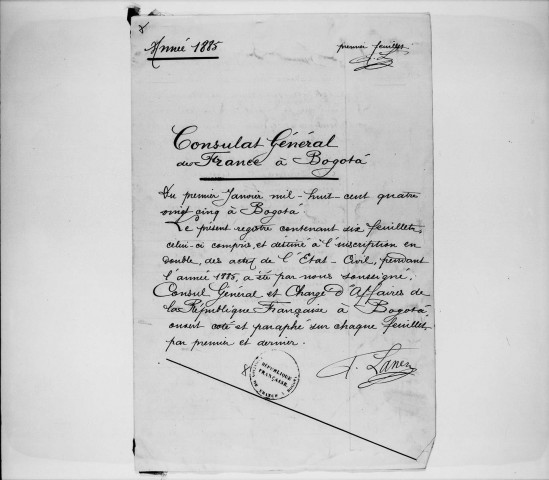 Année 1885
premier feuillet
Consulat Général
de France à Bogotá
Du premier Janvier mil-huit-cent quatre
vingt cinq à Bogotá
Le présent registre contenant six feuillets,
celui-ci compris, et destiné à l'inscription en
double, des actes de l'Etat-Civil, pendant
l'année 1885, a été par nous soussigné,
Consul Général et Chargé d'Affaires de
la République Française à Bogotá
ouvert coté et paraphé sur chaque feuillet
par premier et dernier.
RÉPUBLIQUE
FRANÇAISE